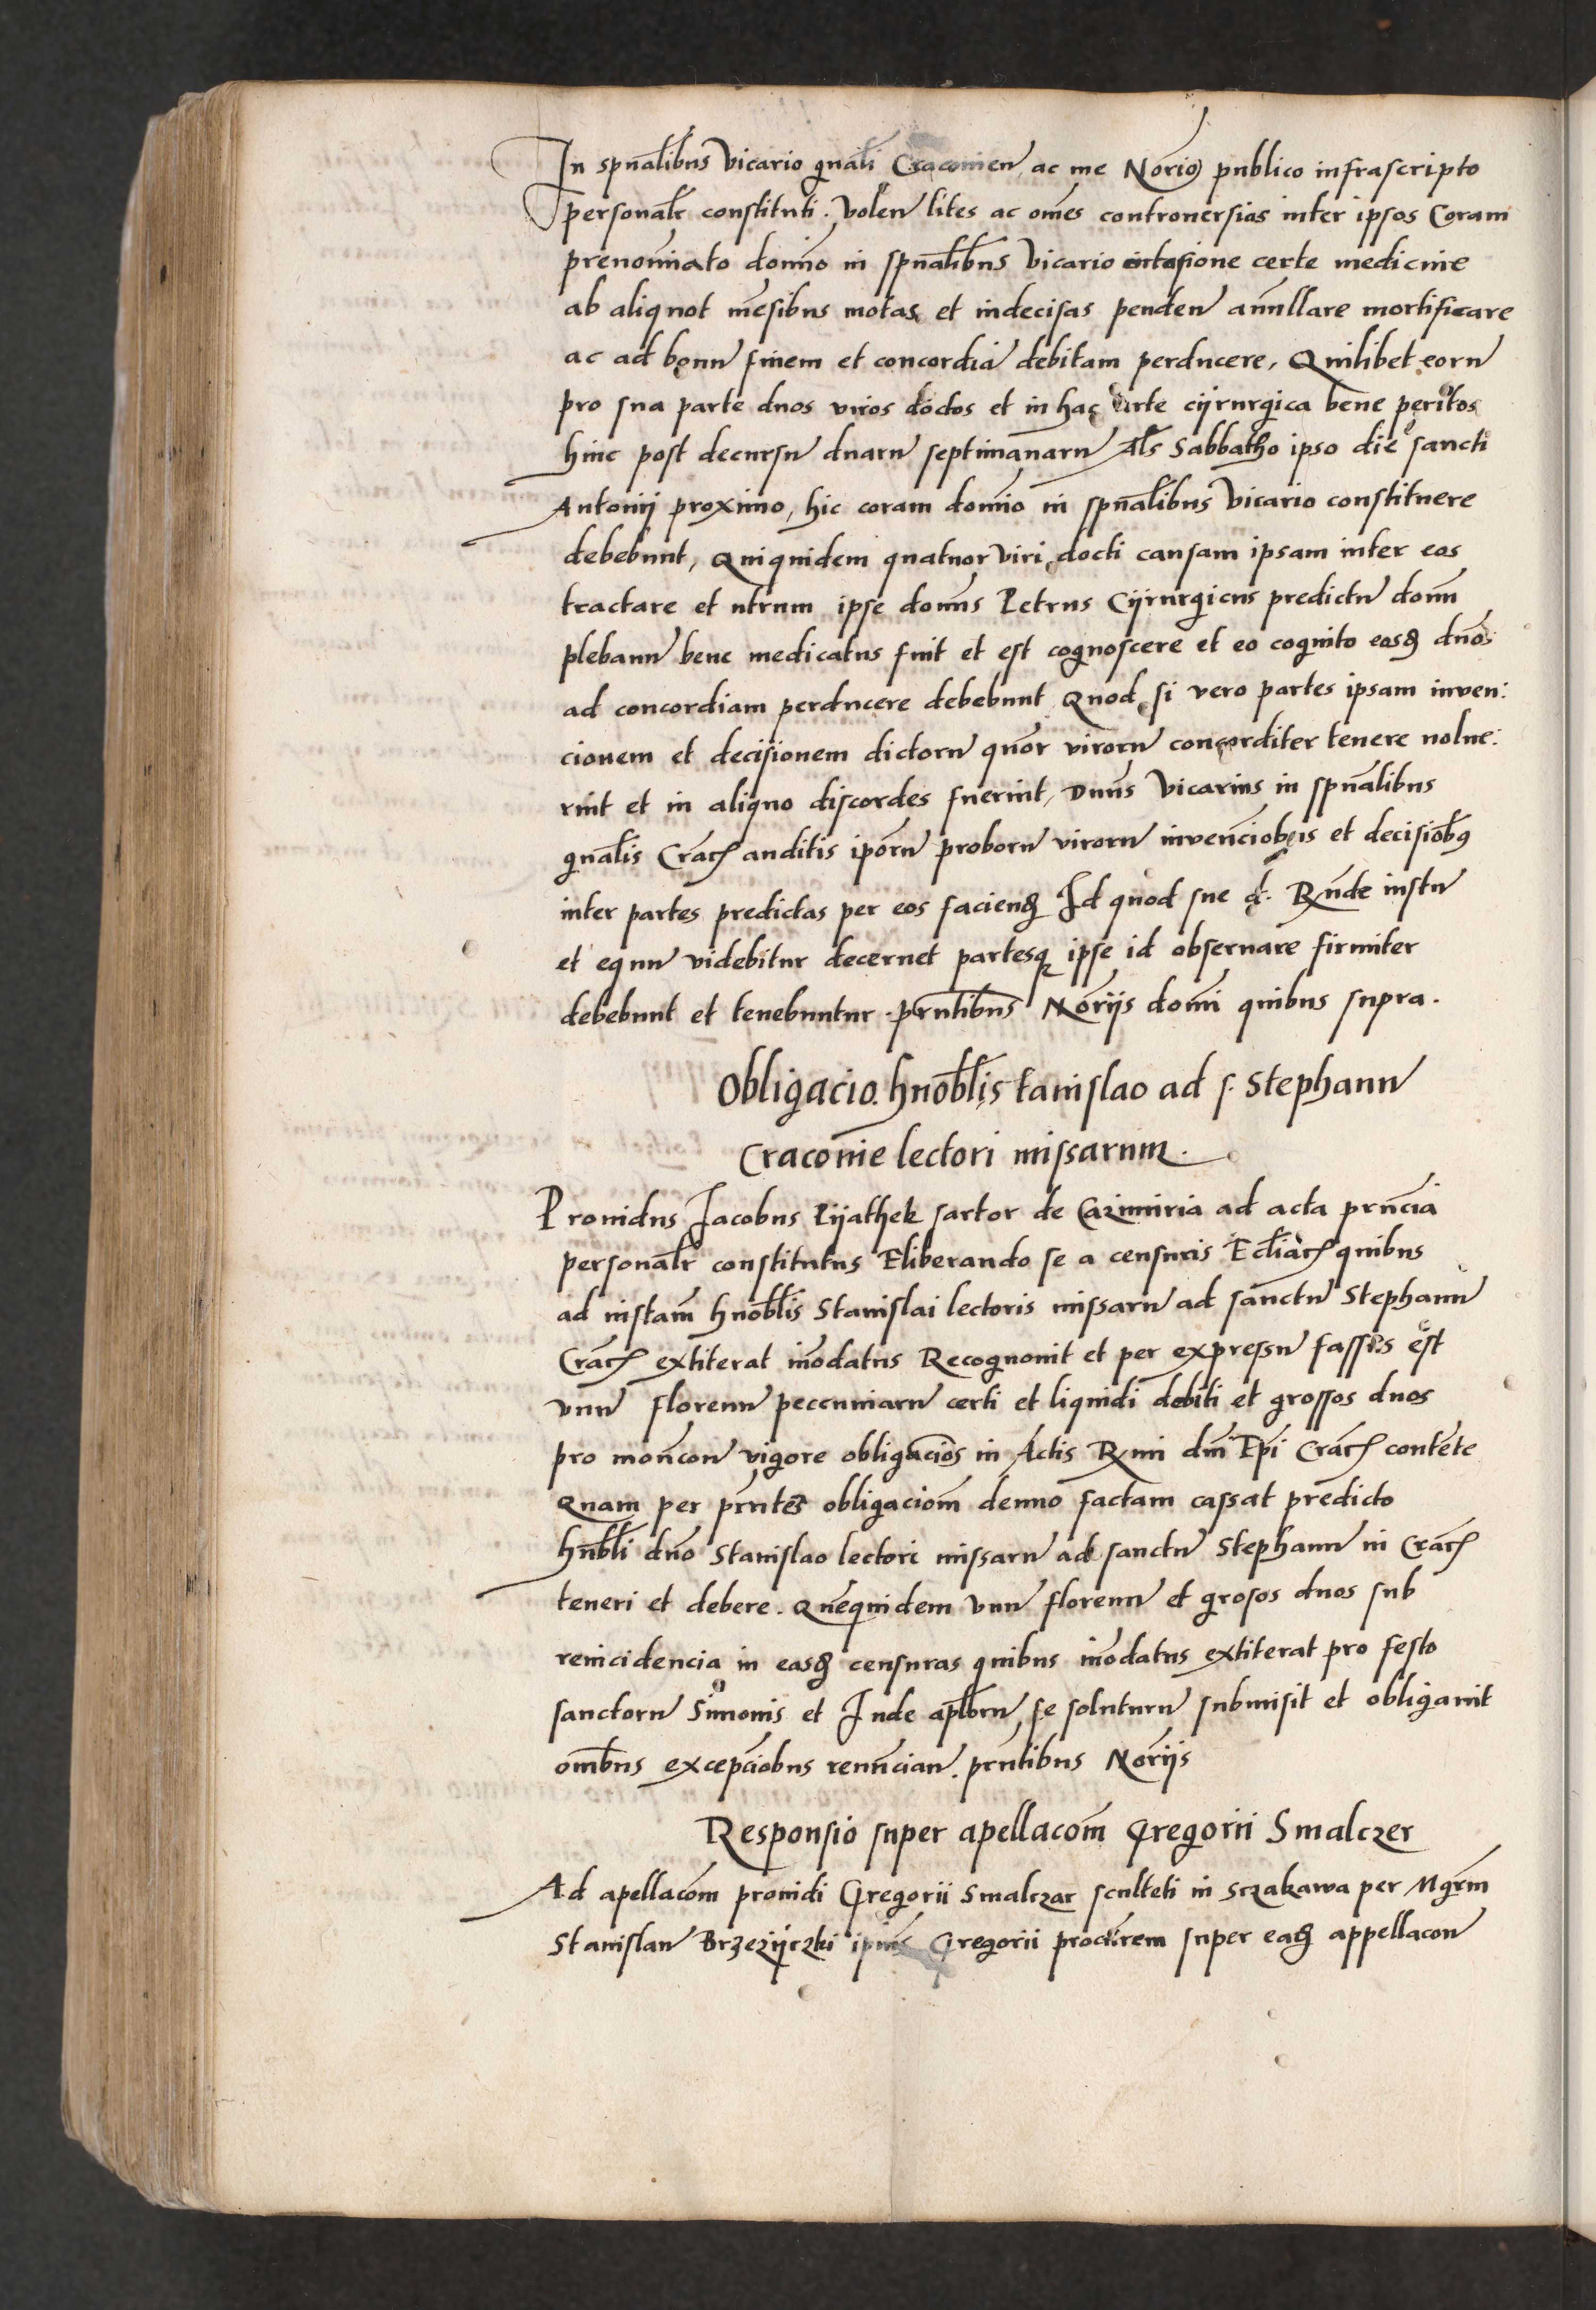 In spūalibus Vicario gnāli Cracouien̄ ac me Norio publico infrascripto
personalr̄ constituti. Volen̄ lites ac oēs controuersias inter ipsos Coram
prenominato domīo in spūalibus Vicario ortasione certe medicine
ab aliquot mēsibus motas et indecisas penden̄ annullare mortificare
ac ad bonū finem et concordiā debitam perducere, Quilibet eorū
pro sua parte duos viros doctos et in hac arte cijrurgica bene peritos
hinc post decursū duarū septimanarū Als̄ Sabbatho ipso die sancti
Antonij proximo, hic coram domīo in spūalibus Vicario constituere
debebunt, Quiquidem quatuor viri docti causam ipsam inter eos
tractare et utrum ipse domīs Petrus Cijrurgicus predictū domīn
plebanū bene medicatus fuit et est cognoscere et eo cognito eosd̄ duos
ad concordiam perducere debebunt Quod si vero partes ipsam inven:
cionem et decisionem dictorū quor̄ virorū concorditer tenere nolue:
rint et in aliquo discordes fuerint, Dnūs Vicarius in spūalibus
gnālis Crac̄ auditis ipōrū proborū virorū invenciobus et decisiobꝰ
inter partes predictas per eos faciend̄ Id quod sue d. Rn̄de iustū
et equū videbitur decernet partesqȝ ipse id obseruare firmiter
debebunt et tenebuntur. prn̄tibus Norijs domī quibus supra.
Obligacio hnoblis tanislao ad s. Stephanū
Cracouie lectori missarum.
Prouidus Jacobus Pijathek sartor de Cazimiria ad acta prn̄cia
personalr̄ constitutus Eliberando se a censuris Eccliac̄ quibus
ad instam̄ hnoblis Stanislai lectoris missarū ad sanctū Stephanū
Crac̄ extiterat inodatus Recognouit et per expressū fassus est
vnū florenū peccuniarū certi et liquidi debiti et grossos duos
pro monicon̄ vigore obligaciois in Actis Rmi dnī Epi Crac̄ contēte
Quam per prn̄tes obligaciom̄ denuo factam cassat predicto
hnbli dno Stanislao lectori missarū ad sanctū Stephanū in Crac̄
teneri et debere. Quequidem vnū florenū et grosos duos sub
reincidencia in easd̄ censuras quibus inodatus extiterat pro festo
sanctorū Simonis et Iude aplorū se soluturū submisit et obligauit
omibus excepciobus renuncian̄. prn̄tibus Norijs
Responsio super apellacom̄ Gregorii Smalczer
Ad apellacom̄ prouidi Gregorii Smalczar sculteti in Sczakawa per Mgrm̄
Stanislaū Brzezijczki ipius Gregorii procurem super ead̄ appellacon̄